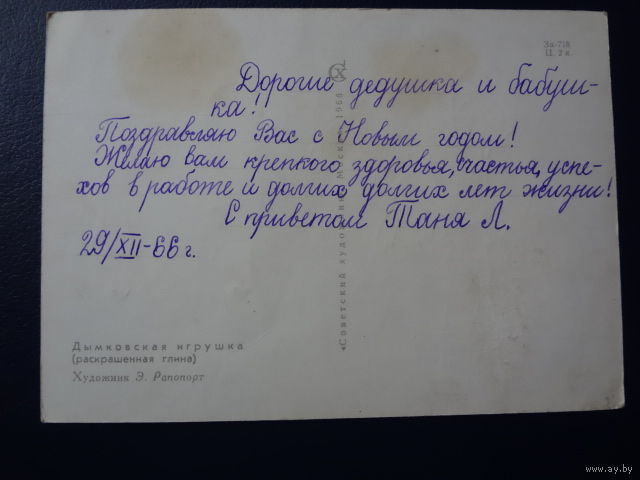 За-718
Ц. 2 к.
Дорогие дедушка и бабуш-
ка!
Поздравляю Вас с Новым годом!
Желаю вам крепкого здоровья, счастья, успе-
хов в работе и долгих долгих лет жизни!
С приветом Таня Л.
29/XII-66 г.
«Советский художник» Москва 1966
Дымковская игрушка
(раскрашенная глина)
Художник Э. Рапопорт
www.ay.by